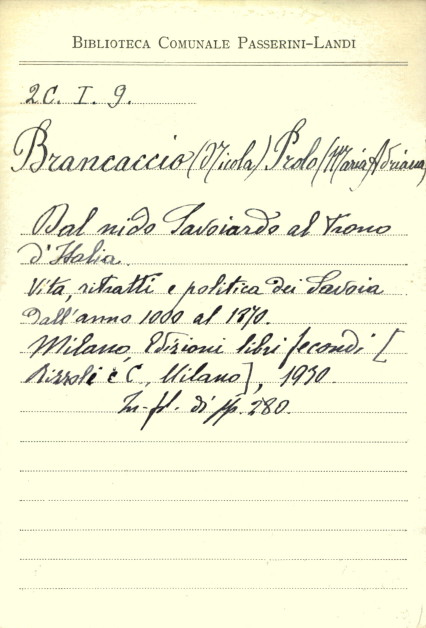 BIBLIOTECA COMUNALE PASSERINI-LANDI
2C. I. 9.
Brancaccio (Nicola) Prolo (Maria Adriana)
Dal nido Savoiardo al Trono
d'Italia.
Vita, ritratti e politica dei Savoia
dall'anno 1000 al 1870.
Milano, Edizioni libri fecondi [
Rizzoli e C., Milano], 1930.
In-fol. di pp. 280.